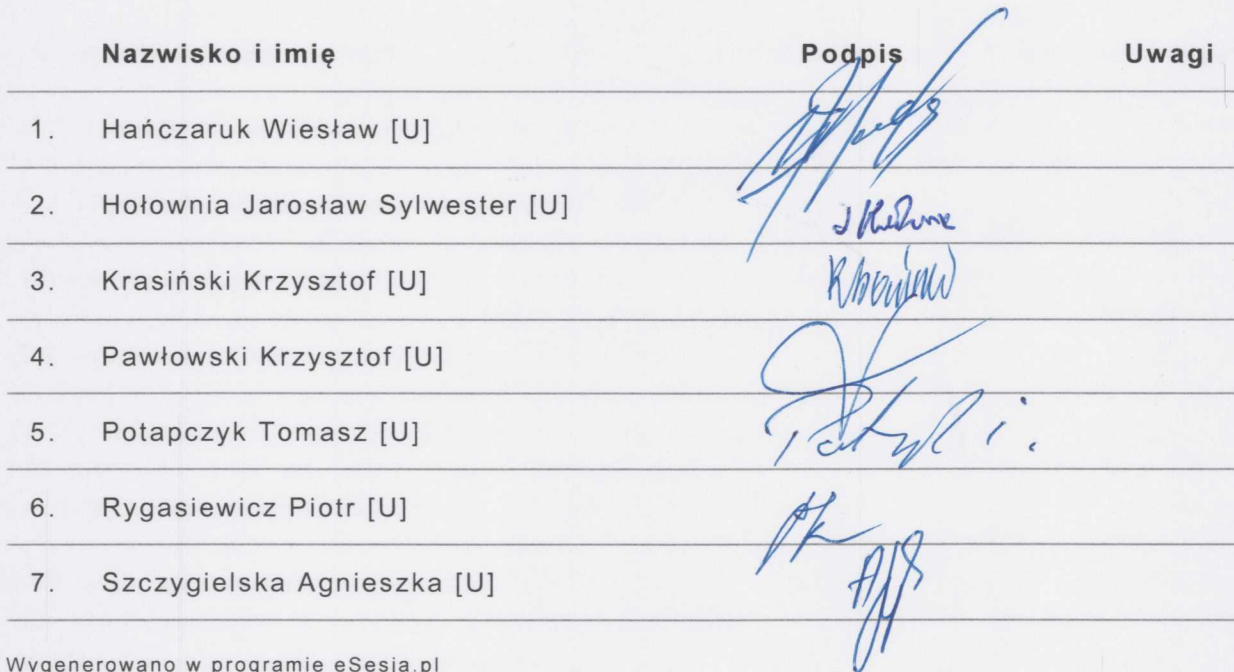 Nazwisko i imię Podpis Uwagi
1. Hańczaruk Wiesław [U]
2. Hołownia Jarosław Sylwester [U]
3. Krasiński Krzysztof [U]
4. Pawłowski Krzysztof [U]
5. Potapczyk Tomasz [U]
6. Rygasiewicz Piotr [U]
7. Szczygielska Agnieszka [U]
Wygenerowano w programie eSesja.pl